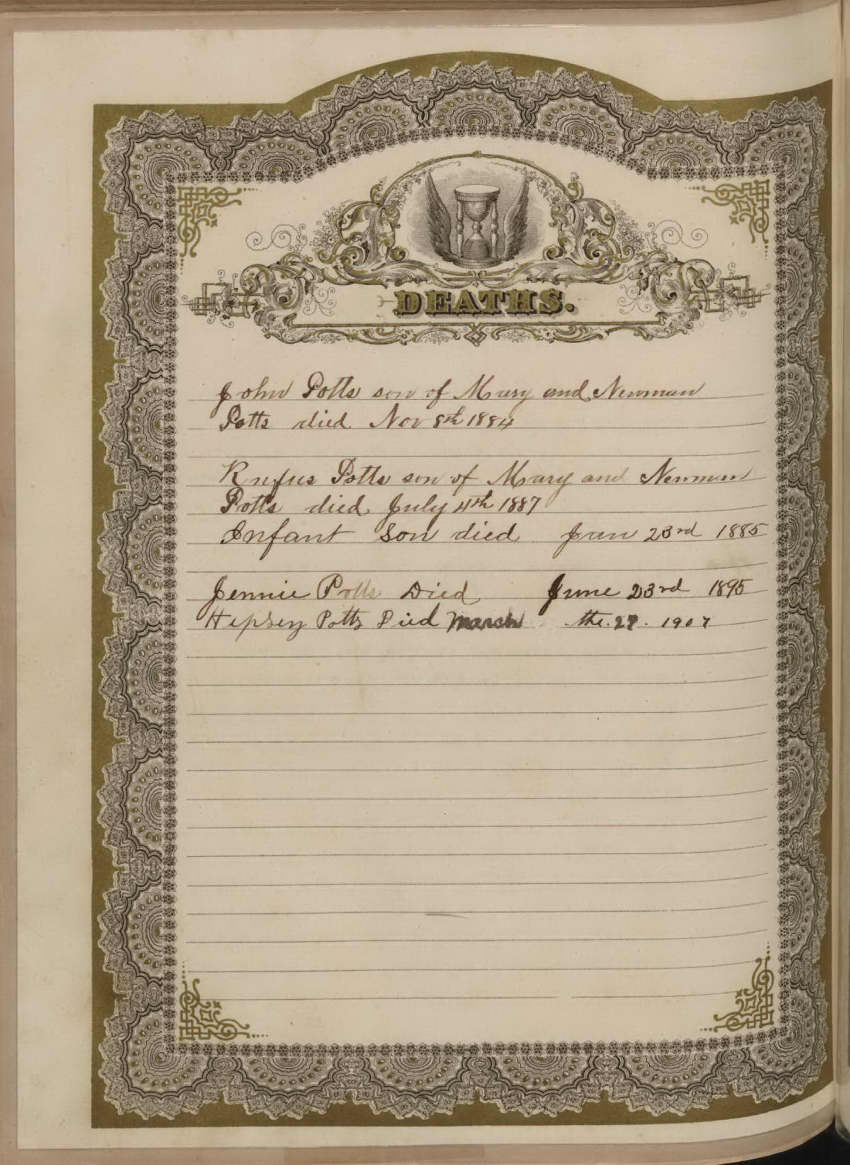 DEATHS.
John Potts son of Mary and Newman
Potts died Nov 8th 1884
Rufus Potts son of Mary and Newman
Potts died July 4th 1887
Infant son died Jan 23rd 1885
Jennie Potts Died June 23rd 1895
Hepsey Potts Died March the. 27. 1907